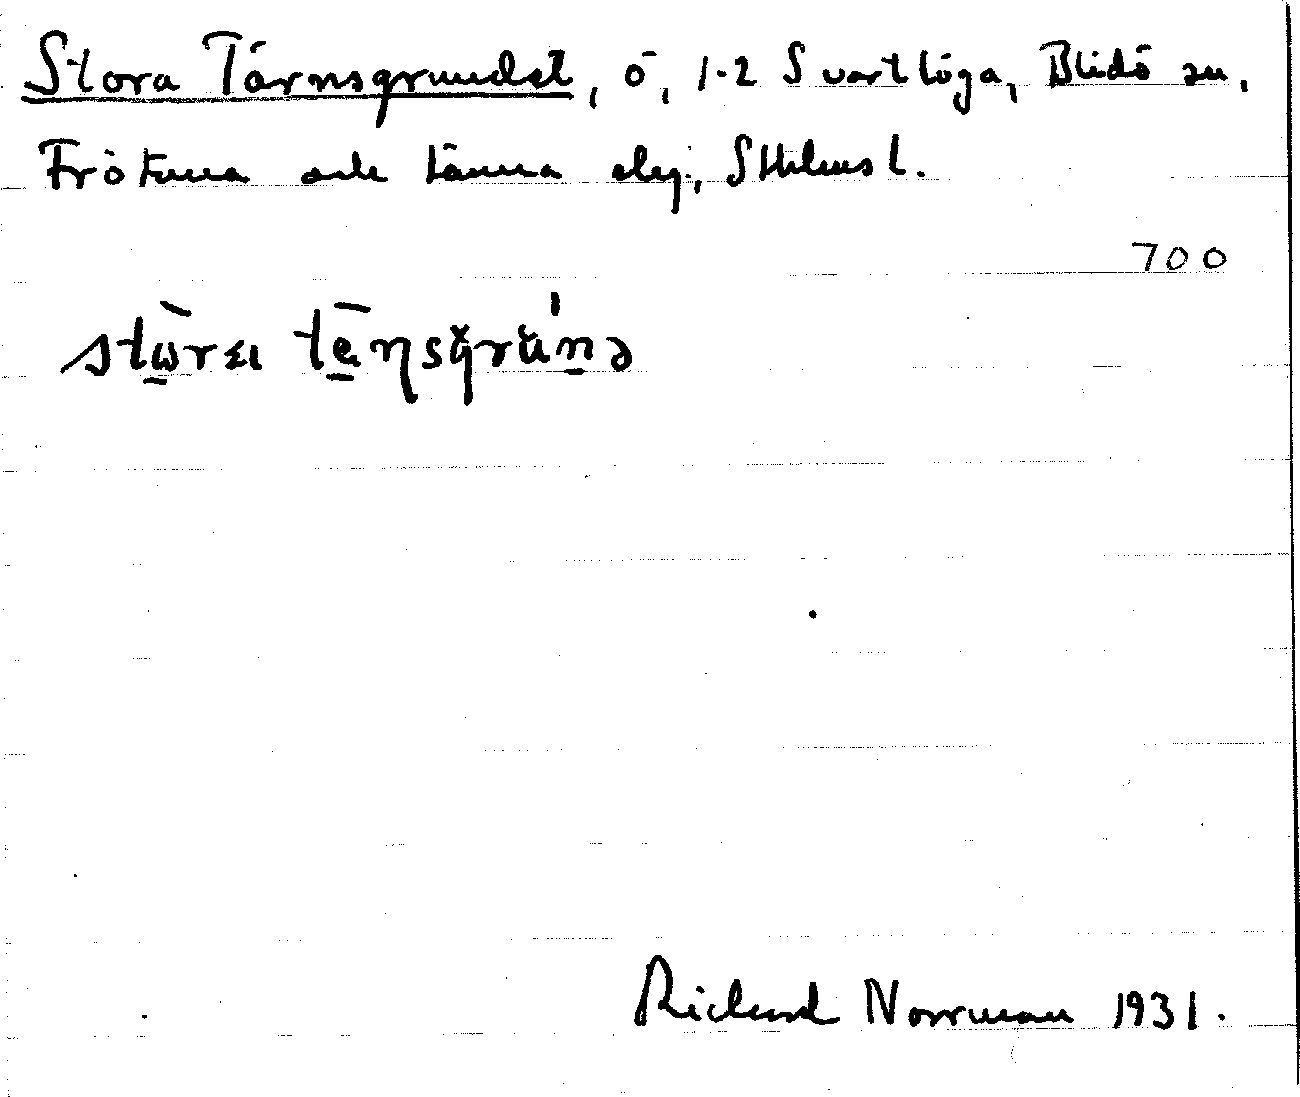 Stora Tärnsgrundet, ö, 1-2 Svartlöga, Blidö sn,
Frötuna och Länna skg., Sthlms l.
700
Richard Norrman 1931.